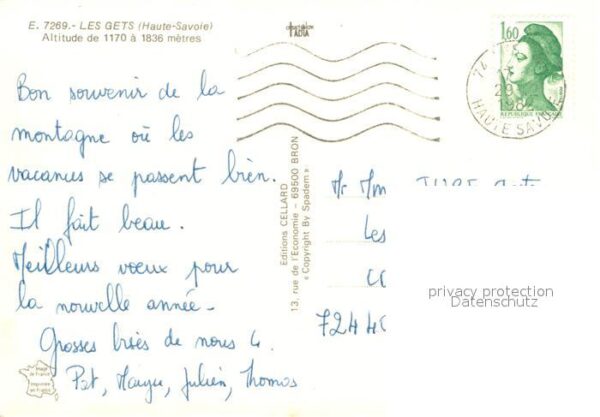 E. 7269.- LES GETS (Haute-Savoie)
Altitude de 1170 à 1836 mètres
Bon souvenir de la
montagne où les
vacances se passent bien.
Il fait beau.
Meilleurs voeux pour
la nouvelle année-
Grosses bises de nous 4.
Pat, Julien, Thomas
Image de France
Imprimée en France
Editions CELLARD
13, rue de l'Economie - 69500 BRON
« Copyright By Spadem »
1,60
REPUBLIQUE
74
29
HAUTE SAVOIE
Mr Mm
Les
7244
privacy protection
Datenschutz